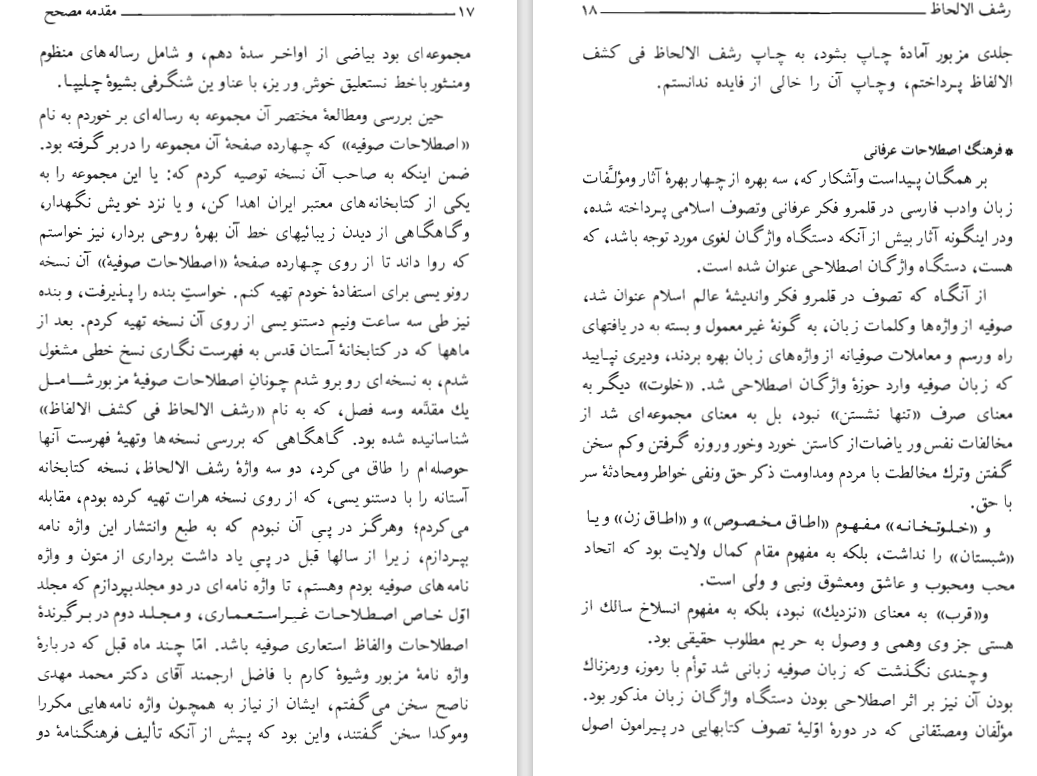 ۱۷ مقدمه مصحح
مجموعه‌ای بود بیاضی از اواخر سدهٔ دهم، و شامل رساله‌های منظوم
ومنثور باخط نستعلیق خوش وریز، با عناوین شنگرفی بشیوهٔ چلیپا.
حین بررسی ومطالعهٔ مختصر آن مجموعه به رساله‌ای بر خوردم به نام
«اصطلاحات صوفیه» که چهارده صفحهٔ آن مجموعه را دربر گرفته بود.
ضمن اینکه به صاحب آن نسخه توصیه کردم که: یا این مجموعه را به
یکی از کتابخانه‌های معتبر ایران اهدا کن، و یا نزد خویش نگهدار،
وگاهگاهی از دیدن زیبائیهای خط آن بهرهٔ روحی بردار، نیز خواستم
که روا داند تا از روی چهارده صفحهٔ «اصطلاحات صوفیهٔ» آن نسخه
رونویسی برای استفادهٔ خودم تهیه کنم. خواستِ بنده را پذیرفت، و بنده
نیز طی سه ساعت ونیم دستنویسی از روی آن نسخه تهیه کردم. بعد از
ماهها که در کتابخانهٔ آستان قدس به فهرست نگاری نسخ خطی مشغول
شدم، به نسخه‌ای روبرو شدم چونانِ اصطلاحات صوفیهٔ مزبور شامل
یك مقدّمه وسه فصل، که به نام «رشف الالحاظ فی کشف الالفاظ»
شناسانیده شده بود. گاهگاهی که بررسی نسخه‌ها وتهیهٔ فهرست آنها
حوصله‌ام را طاق می‌کرد، دو سه واژهٔ رشف الالحاظ، نسخه کتابخانه
آستانه را با دستنویسی، که از روی نسخه هرات تهیه کرده بودم، مقابله
می‌کردم؛ وهرگز در پی آن نبودم که به طبع وانتشار این واژه نامه
بپردازم، زیرا از سالها قبل در پی یاد داشت برداری از متون و واژه
نامه‌های صوفیه بودم وهستم، تا واژه نامه‌ای در دو مجلدبپردازم که مجلد
اوّل خاص اصطلاحات غیراستعماری، و مجلد دوم در برگرندهٔ
اصطلاحات والفاظ استعاری صوفیه باشد. امّا چند ماه قبل که دربارهٔ
واژه نامهٔ مزبور وشیوهٔ کارم با فاضل ارجمند آقای دکتر محمد مهدی
ناصح سخن می‌گفتم، ایشان از نیاز به همچون واژه نامه‌هایی مکررا
وموکدا سخن گفتند، واین بود که پیش از آنکه تألیف فرهنگنامهٔ دو
رشف الالحاظ ۱۸
جلدی مزبور آمادهٔ چاپ بشود، به چاپ رشف الالحاظ فی کشف
الالفاظ پرداختم، وچاپ آن را خالی از فایده ندانستم.
* فرهنگ اصطلاحات عرفانی
بر همگان پیداست وآشکار که، سه بهره از چهار بهرهٔ آثار ومؤلَّفات
زبان وادب فارسی در قلمرو فکر عرفانی وتصوف اسلامی پرداخته شده،
ودر اینگونه آثار بیش از آنکه دستگاه واژگان لغوی مورد توجه باشد، که
هست، دستگاه واژگان اصطلاحی عنوان شده است.
از آنگاه که تصوف در قلمرو فکر واندیشهٔ عالم اسلام عنوان شد،
صوفیه از واژه‌ها وکلمات زبان، به گونهٔ غیر معمول و بسته به دریافتهای
راه ورسم و معاملات صوفیانه از واژه‌های زبان بهره بردند، ودیری نپایید
که زبان صوفیه وارد حوزهٔ واژگان اصطلاحی شد. «خلوت» دیگر به
معنای صرف «تنها نشستن» نبود، بل به معنای مجموعه‌ای شد از
مخالفات نفس وریاضات‌از کاستن خورد وخور وروزه گرفتن وکم سخن
گفتن وترك مخالطت با مردم ومداومت ذکر حق ونفی خواطر ومحادثهٔ سر
با حق.
و «خلوتخانه» مفهوم «اطاق مخصوص» و «اطاق زن» و یا
«شبستان» را نداشت، بلکه به مفهوم مقام کمال ولایت بود که اتحاد
محب ومحبوب و عاشق ومعشوق ونبی و ولی است.
و«قرب» به معنای «نزدیك» نبود، بلکه به مفهوم انسلاخ سالك از
هستی جزوی وهمی و وصول به حریم مطلوب حقیقی بود.
وچندی نگذشت که زبان صوفیه زبانی شد توأم با رموز، ورمزناك
بودن آن نیز بر اثر اصطلاحی بودن دستگاه واژگان زبان مذکور بود.
مؤلّفان ومصنّفانی که در دورهٔ اوّلیهٔ تصوف کتابهایی در پیرامون اصول